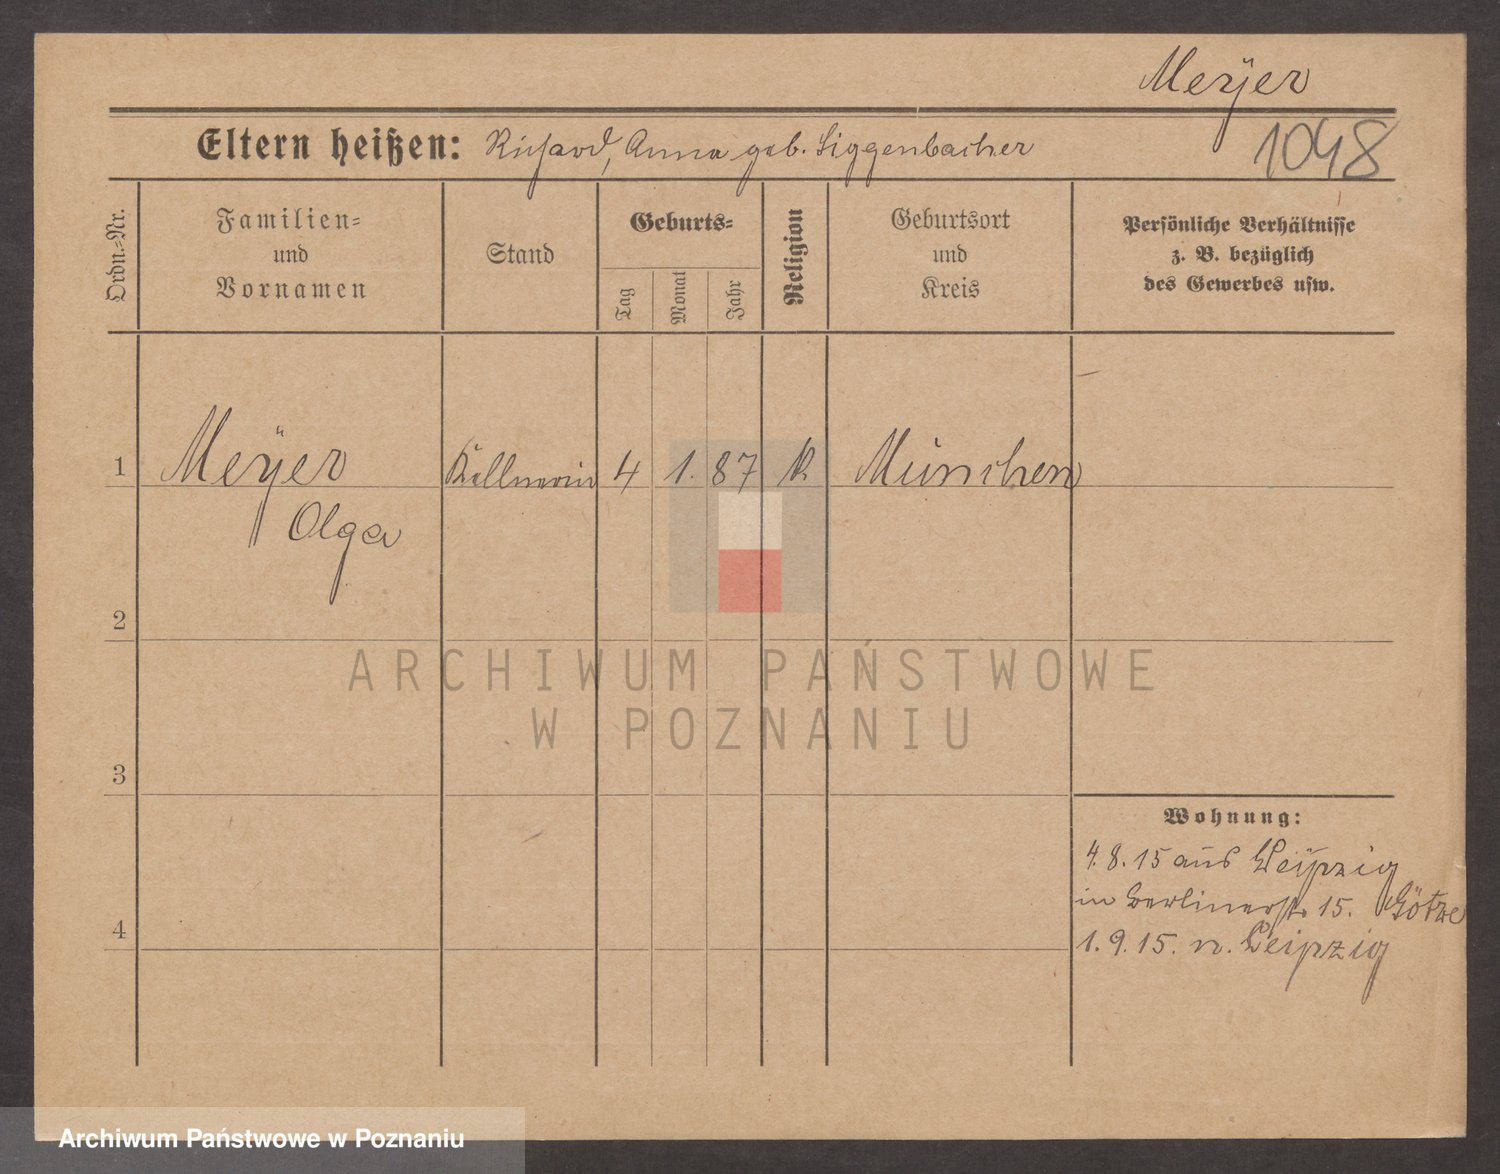 Meÿer
Eltern heißen: Richard, Anna geb. Siggenbacher
1048
Ordn.=Nr.
Familien=
und
Vornamen
Stand
Geburts=
Tag
Monat
Jahr
Religion
Geburtsort
und
Kreis
Persönliche Verhältnisse
z. B. bezüglich
des Gewerbes usw.
1 Meÿer Kellnerin 4 1. 87 K München
Olga
2
ARCHIWUM PAŃSTWOWE
W POZNANIU
3
Wohnung:
4.8.15 aus Leipzig
in Berlinerstr 15. Götze
4
1.9.15. n. Leipzig
Archiwum Państwowe w Poznaniu